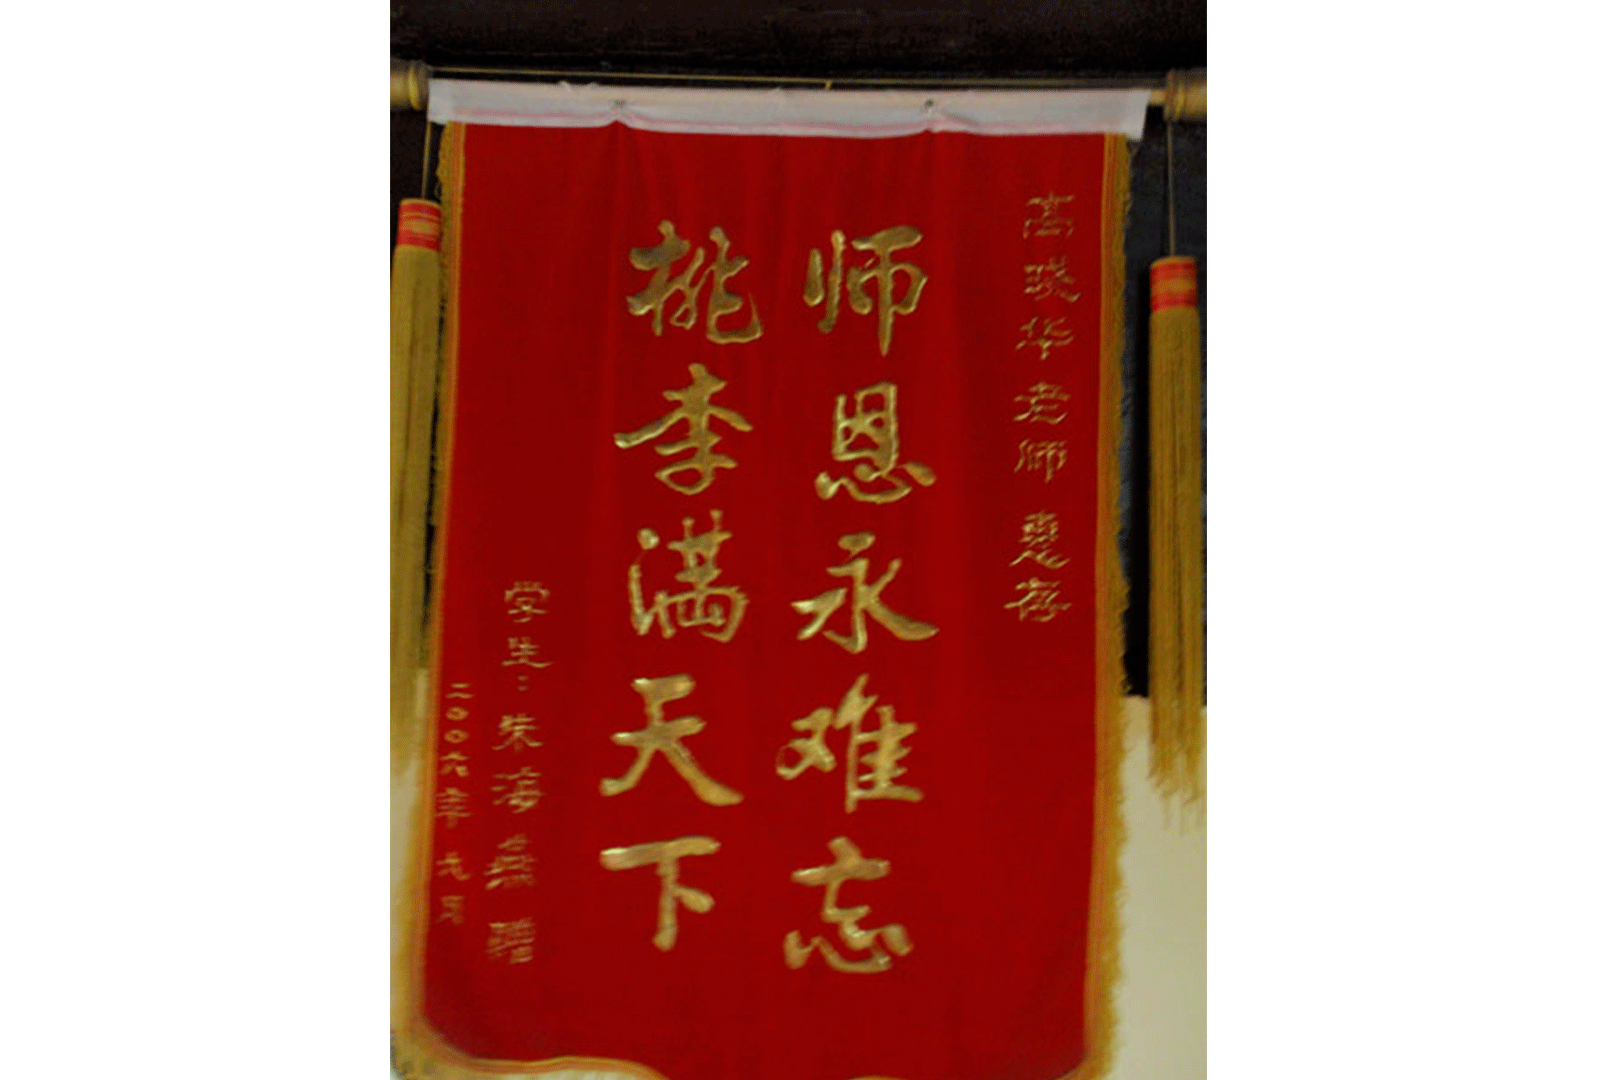 高晓华老师 惠存
师恩永难忘
桃李满天下
学生：朱海燕 赠
二00六年七月